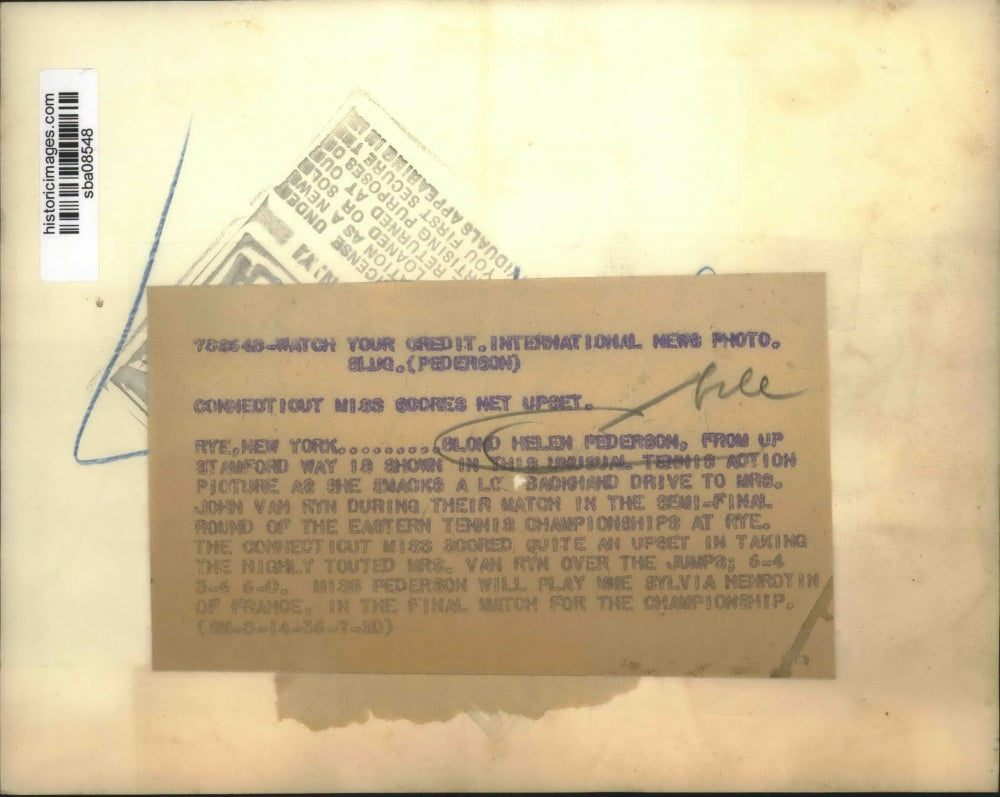 historicimages.com
sba08548
CENSE UNDER
TION AS A NEWS
LOANED OR SOLD
RETURNED AT OUR
RTISING PURPOSES OR
YOU FIRST SECURE THE
VIDUALS APPEARING IN
WATCH YOUR CREDIT.INTERNATIONAL NEWS PHOTO.
SLUG.(PEDERSON)
CONNECTICUT MISS SCORES NET UPSET.
file
RYE,NEW YORK.........BLOND HELEN PEDERSON, FROM UP
STAMFORD WAY IS SHOWN IN THIS UNUSUAL TENNIS ACTION
PICTURE AS SHE SMACKS A LO BACKHAND DRIVE TO MRS.
JOHN VAN RYN DURING THEIR MATCH IN THE SEMI-FINAL
ROUND OF THE EASTERN TENNIS CHAMPIONSHIPS AT RYE.
THE CONNECTICUT MISS SCORED QUITE AN UPSET IN TAKING
THE HIGHLY TOUTED MRS. VAN RYN OVER THE JUMPS; 6-4
3-6 6-0. MISS PEDERSON WILL PLAY MME SYLVIA HENROTIN
OF FRANCE. IN THE FINAL MATCH FOR THE CHAMPIONSHIP.